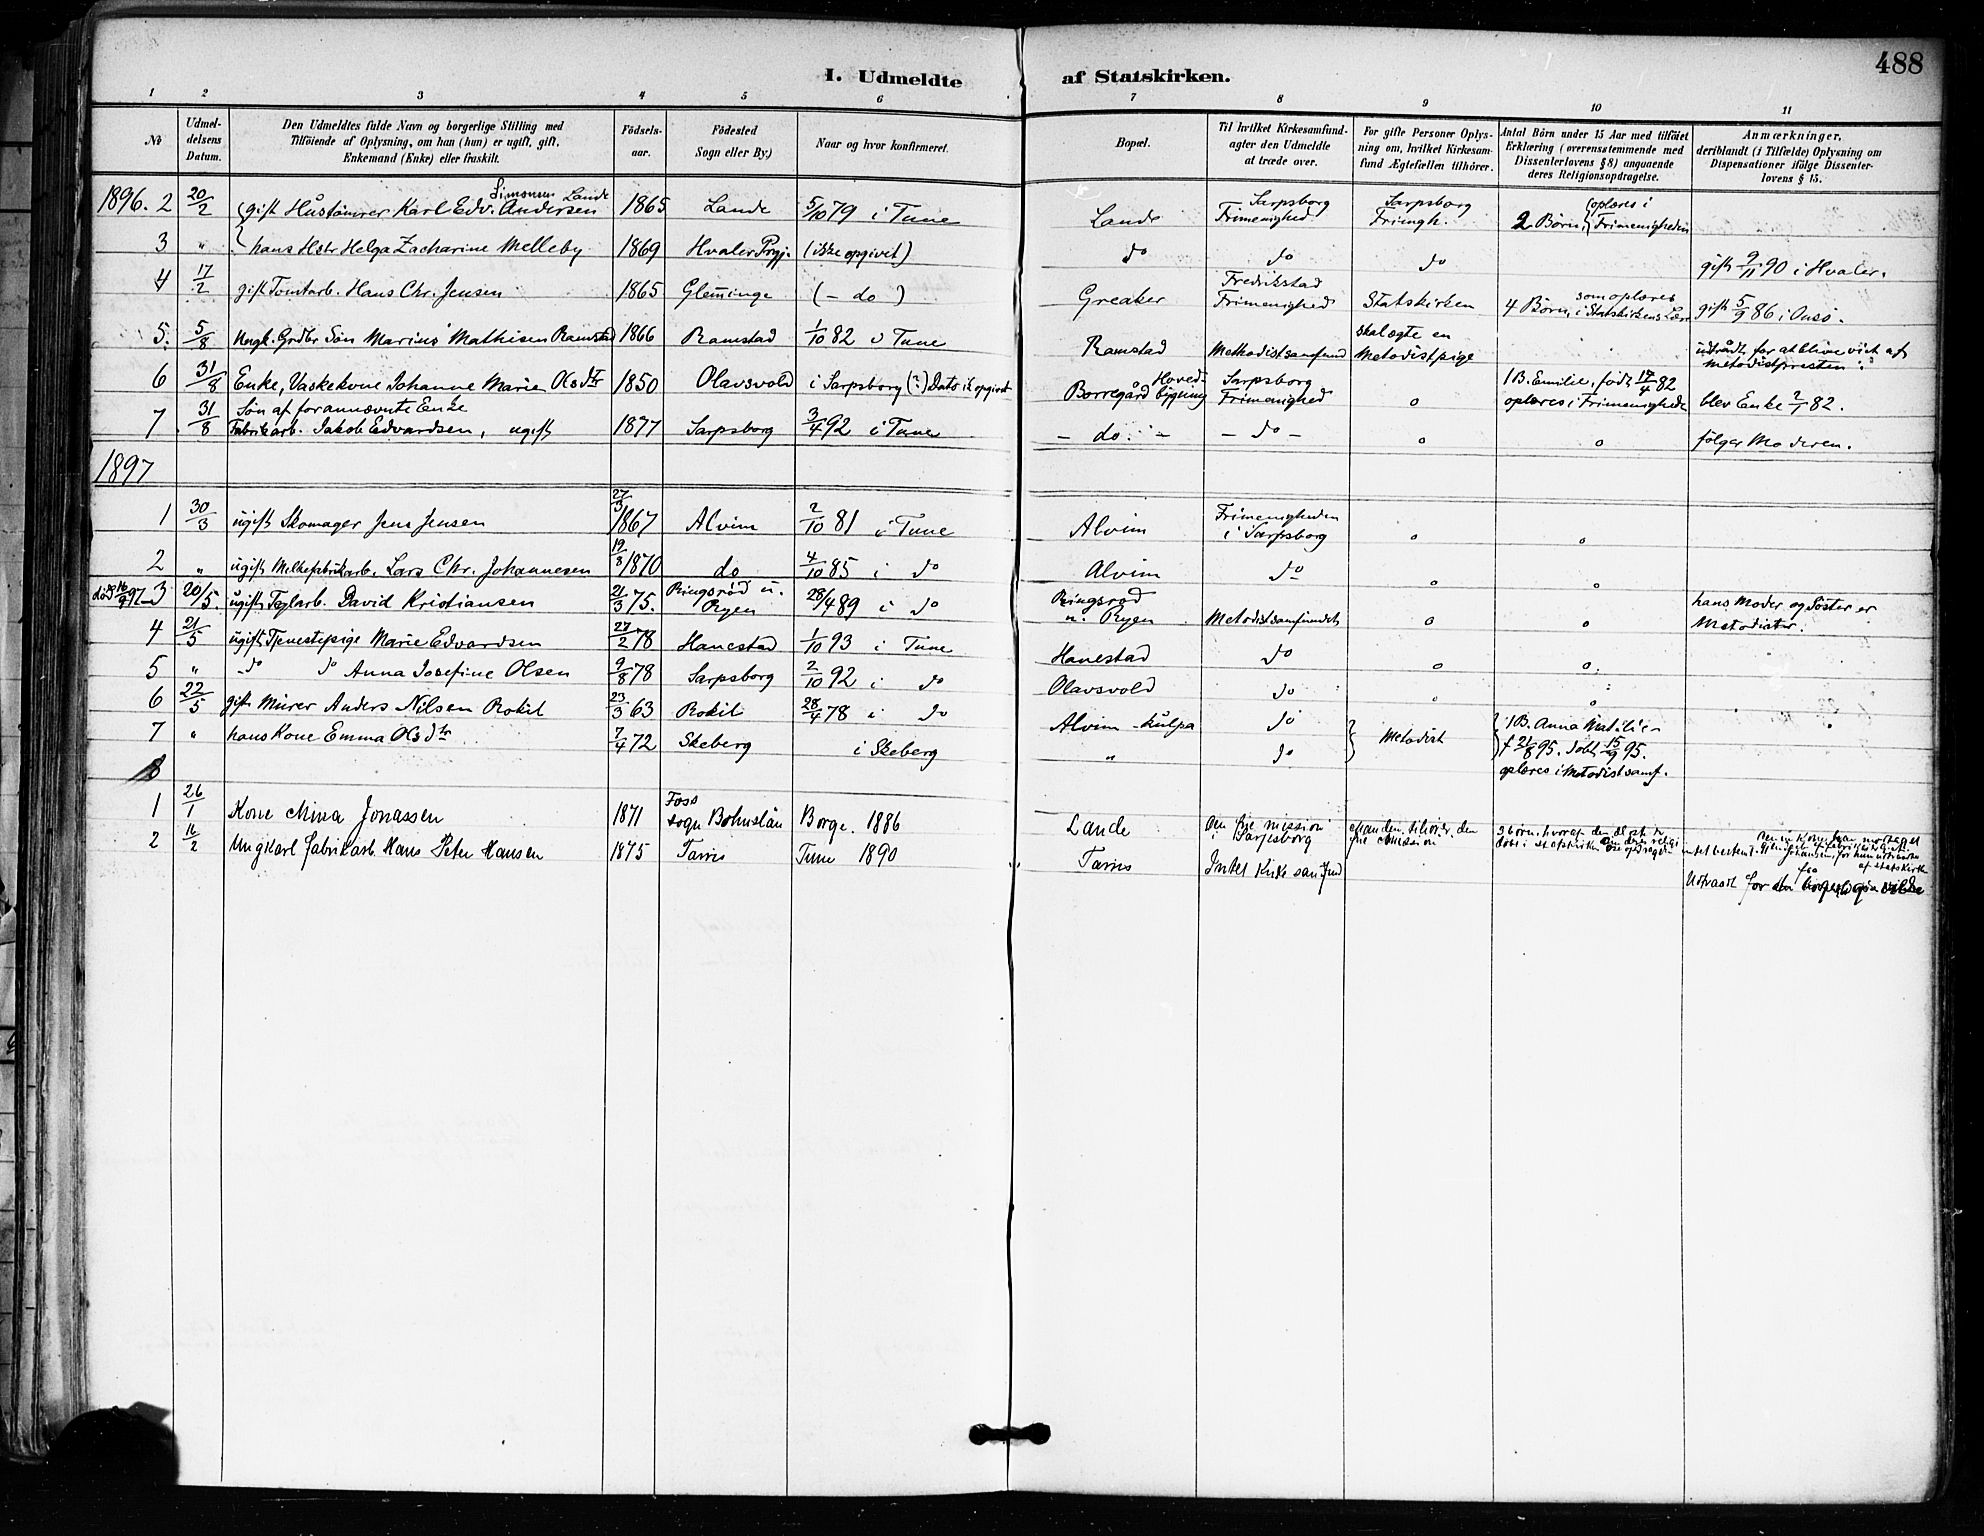 488
I. Udmeldte af Statskirken.
1 2 3 4 5 6 7 8 9 10 11
No
Udmeldelsens Datum.
Den Udmeldtes fulde Navn og borgerlige Stilling med
Tilføiende af Oplysning, om han (hun) er ugift, gift,
Enkemand (Enke) eller fraskilt.
Fødselsaar.
Fødested
Sogn eller By.)
Naar og hvor konfirmeret.
Bopæl.
Til hvilket Kirkesamfund-
agter den Udmeldte
at træde over.
For gifte Personer Oplys-
ning om, hvilket Kirkesam-
fund Ægtefællen tilhører.
Antal Børn under 15 Aar med tilføiet
Erklæring (overensstemmende med
Dissenterlovens § 8) angaaende
deres Religionsopdragelse.
Anmærkninger,
deriblandt (i Tilfælde) Oplysning om
Dispensationer ifølge Dissenter-
lovens § 15.
1896. 2 20/2 gift Hustømrer Karl Edv. Andersen Simonsen Lande 1865 Lande 5/10 79 i Tune Lande Sarpsborg Frimenighed Sarpsborg Frimgh. 2 Børn, (oplæres i Frimenigheden
3 " hans Hstr Helga Zacharine Melleby 1869 Hvaler Prgj. (ikke opgivet) do do do gift 9/11 90 i Hvaler.
4 17/2 gift Tomtarb. Hans Chr. Jensen 1865 Glemminge (- do ) Greaker Fredrikstad Frimenighed Statskirken 4 Børn, som oplæres i Statskirkens Lære gift 5/9 86 i Onsø.
5. 5/8 Ungk. Grdbr Søn Marius Mathisen Ramstad 1866 Ramstad 1/10 82 i Tune Ramstad Methodistsamfund skal ægte en Metodistpige udtrådt for at blive viet af metodistpresten
6 31/8 Enke, Vaskekone Johanne Marie Olsdtr 1850 Olavsvold i Sarpsborg (?) Dato ik opgivet Borregård Hovedbygning Sarpsborg Frimenighed o 1 B. Emilie, født 17/4 82 oplæres i Frimenighede blev Enke 2/1 82.
7 31/8 Søn af forannævnte Enke
Fabrikarb. Jakob Edvardsen, ugift 1877 Sarpsborg 3/4 92 i Tune - do - - do - o o følger Moderen.
1897
1 30/3 ugift Skomager Jens Jensen 27/3 1867 Alvim 2/10 81 i Tune Alvim Frimenigheden i Sarpsborg o o
2 " ugift Melkefabrikarb. Lars Chr. Johannesen 19/8 1870 do 4/10 85 i do Alvim do o o
død 16/9 97 3 20/5. ugift Teglarb. David Kristiansen 21/3 75. Ringsrød u. Ryen 28/4 89 i do Ringsrød u. Ryen Metodistsamfundet o o hans Moder og Søster er Metodister.
4 21/5 ugift Tjenestepige Marie Edvardsen 27/2 78 Hanestad 1/10 93 i Tune Hanestad do o o
5 " do do Anna Josefine Olsen 9/8 78 Sarpsborg 2/10 92 i do Olavsvold do o o
6 22/5 gift Murer Anders Nilsen Rokil 23/3 63 Rokil 28/4 78 i do Alvim - Kulpa do Metodist 1 B. Anna Matilie
7 " hans Kone Emma Olsdtr 7/4 72 Skeberg i Skeberg " do f 21/8 95. døbt 15/9 95.
oplæres i Metodistsamf.
8
1 26/1 Kone Mina Jonassen 1871 Foss sogn Bohuslän Borge. 1886 Lande Den frie mission i Sarpsborg Manden tilhører den frie Mission
2 16/2 Ungkarl fabrikarb. Hans Peter Hansen 1875 Tarris Tune 1890 Tarris Intet Kirkesamfund Udtraadt for